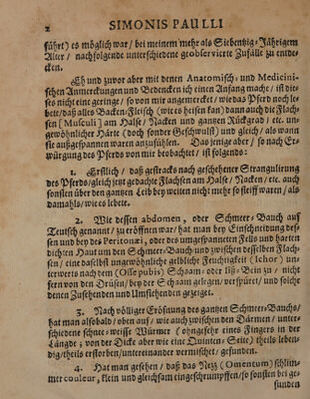 2 SIMONIS PAULLI
führt) es möglich war / bei meinem mehr als Siebentzig-Jährigem
Alter / nachfolgende unterschiedene geobservierte Zufälle zu entde-
cken.
Eh und zuvor aber mit denen Anatomisch- und Medicini-
schen Anmerckungen und Bedencken ich einen Anfang mache / ist die-
ses nicht eine geringe / so von mir angemercket / wie das Pferd noch le-
bete / daß alles Backen-Fleisch (wie es heissen kan) dann auch die Flach-
sen [Musculi] am Halse / Nacken und gantzen Rückgrad / etc. un-
gewöhnlicher Härte (doch sonder Geschwulst) und gleich / als wann
sie außgespannen waren anzufühlen. Das jenige aber / so nach Er-
würgung des Pferds von mir beobachtet / ist folgends:
1. Erstlich / daß gestracks nach geschehener Strangulierung
des Pferds / gleich jetzt gedachte Flachsen am Halse / Nacken / etc. auch
sonsten über den gantzen Leib bey weiten nicht mehr so steiff waren / als
damahls / wie es lebete.
2. Wie dessen abdomen, oder Schmeer-Bauch auf
Teutsch genannt / zu eröffnen war / hat man bey Einschneidung des-
sen und bey des Peritonæi, oder des umgespannten Fells und harten
dichten Haut um den Schmeer-Bauch und zwischen desselben Flach-
sen / eine daselbst ungewöhnliche gelbliche Feuchtigkeit (Ichor) un-
terwerts nach dem (Osse pubis) Schaam- oder Eiß-Bein zu / nicht
fern von den Drüsen / bey der Schaam gelegen / verspüret / und solche
denen Zusehenden und Umstehenden gezeiget.
3. Nach völliger Erösnung des gantzen Schmeer-Bauchs /
hat man alsobald / oben auf / wie auch zwischen den Därmen / unter-
schiedene schnee-weisse Würmer (ohngefehr eines Fingers in der
Längde; von der Dicke aber wie eine Quinten-Seite) theils leben-
dig / theils erstorben / untereinander vermischet / gefunden.
4. Hat man gesehen / daß das Netz (Omentum) schlim-
mer couleur, klein und gleichsam eingeschrumpffen / so sonsten bei ge-
sunden